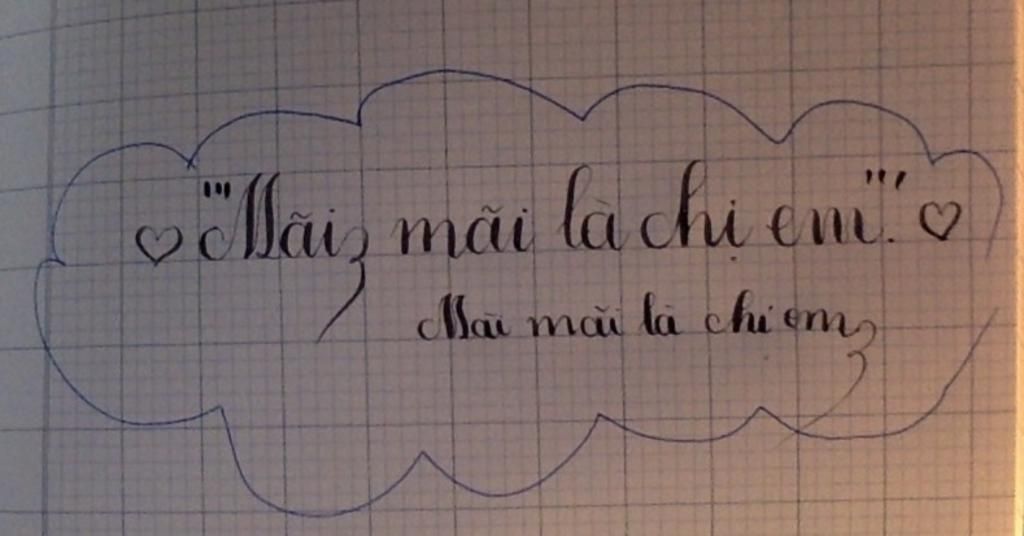 ♡ "'Mãi mãi là chị em.''' ♡
Mãi mãi là chị em